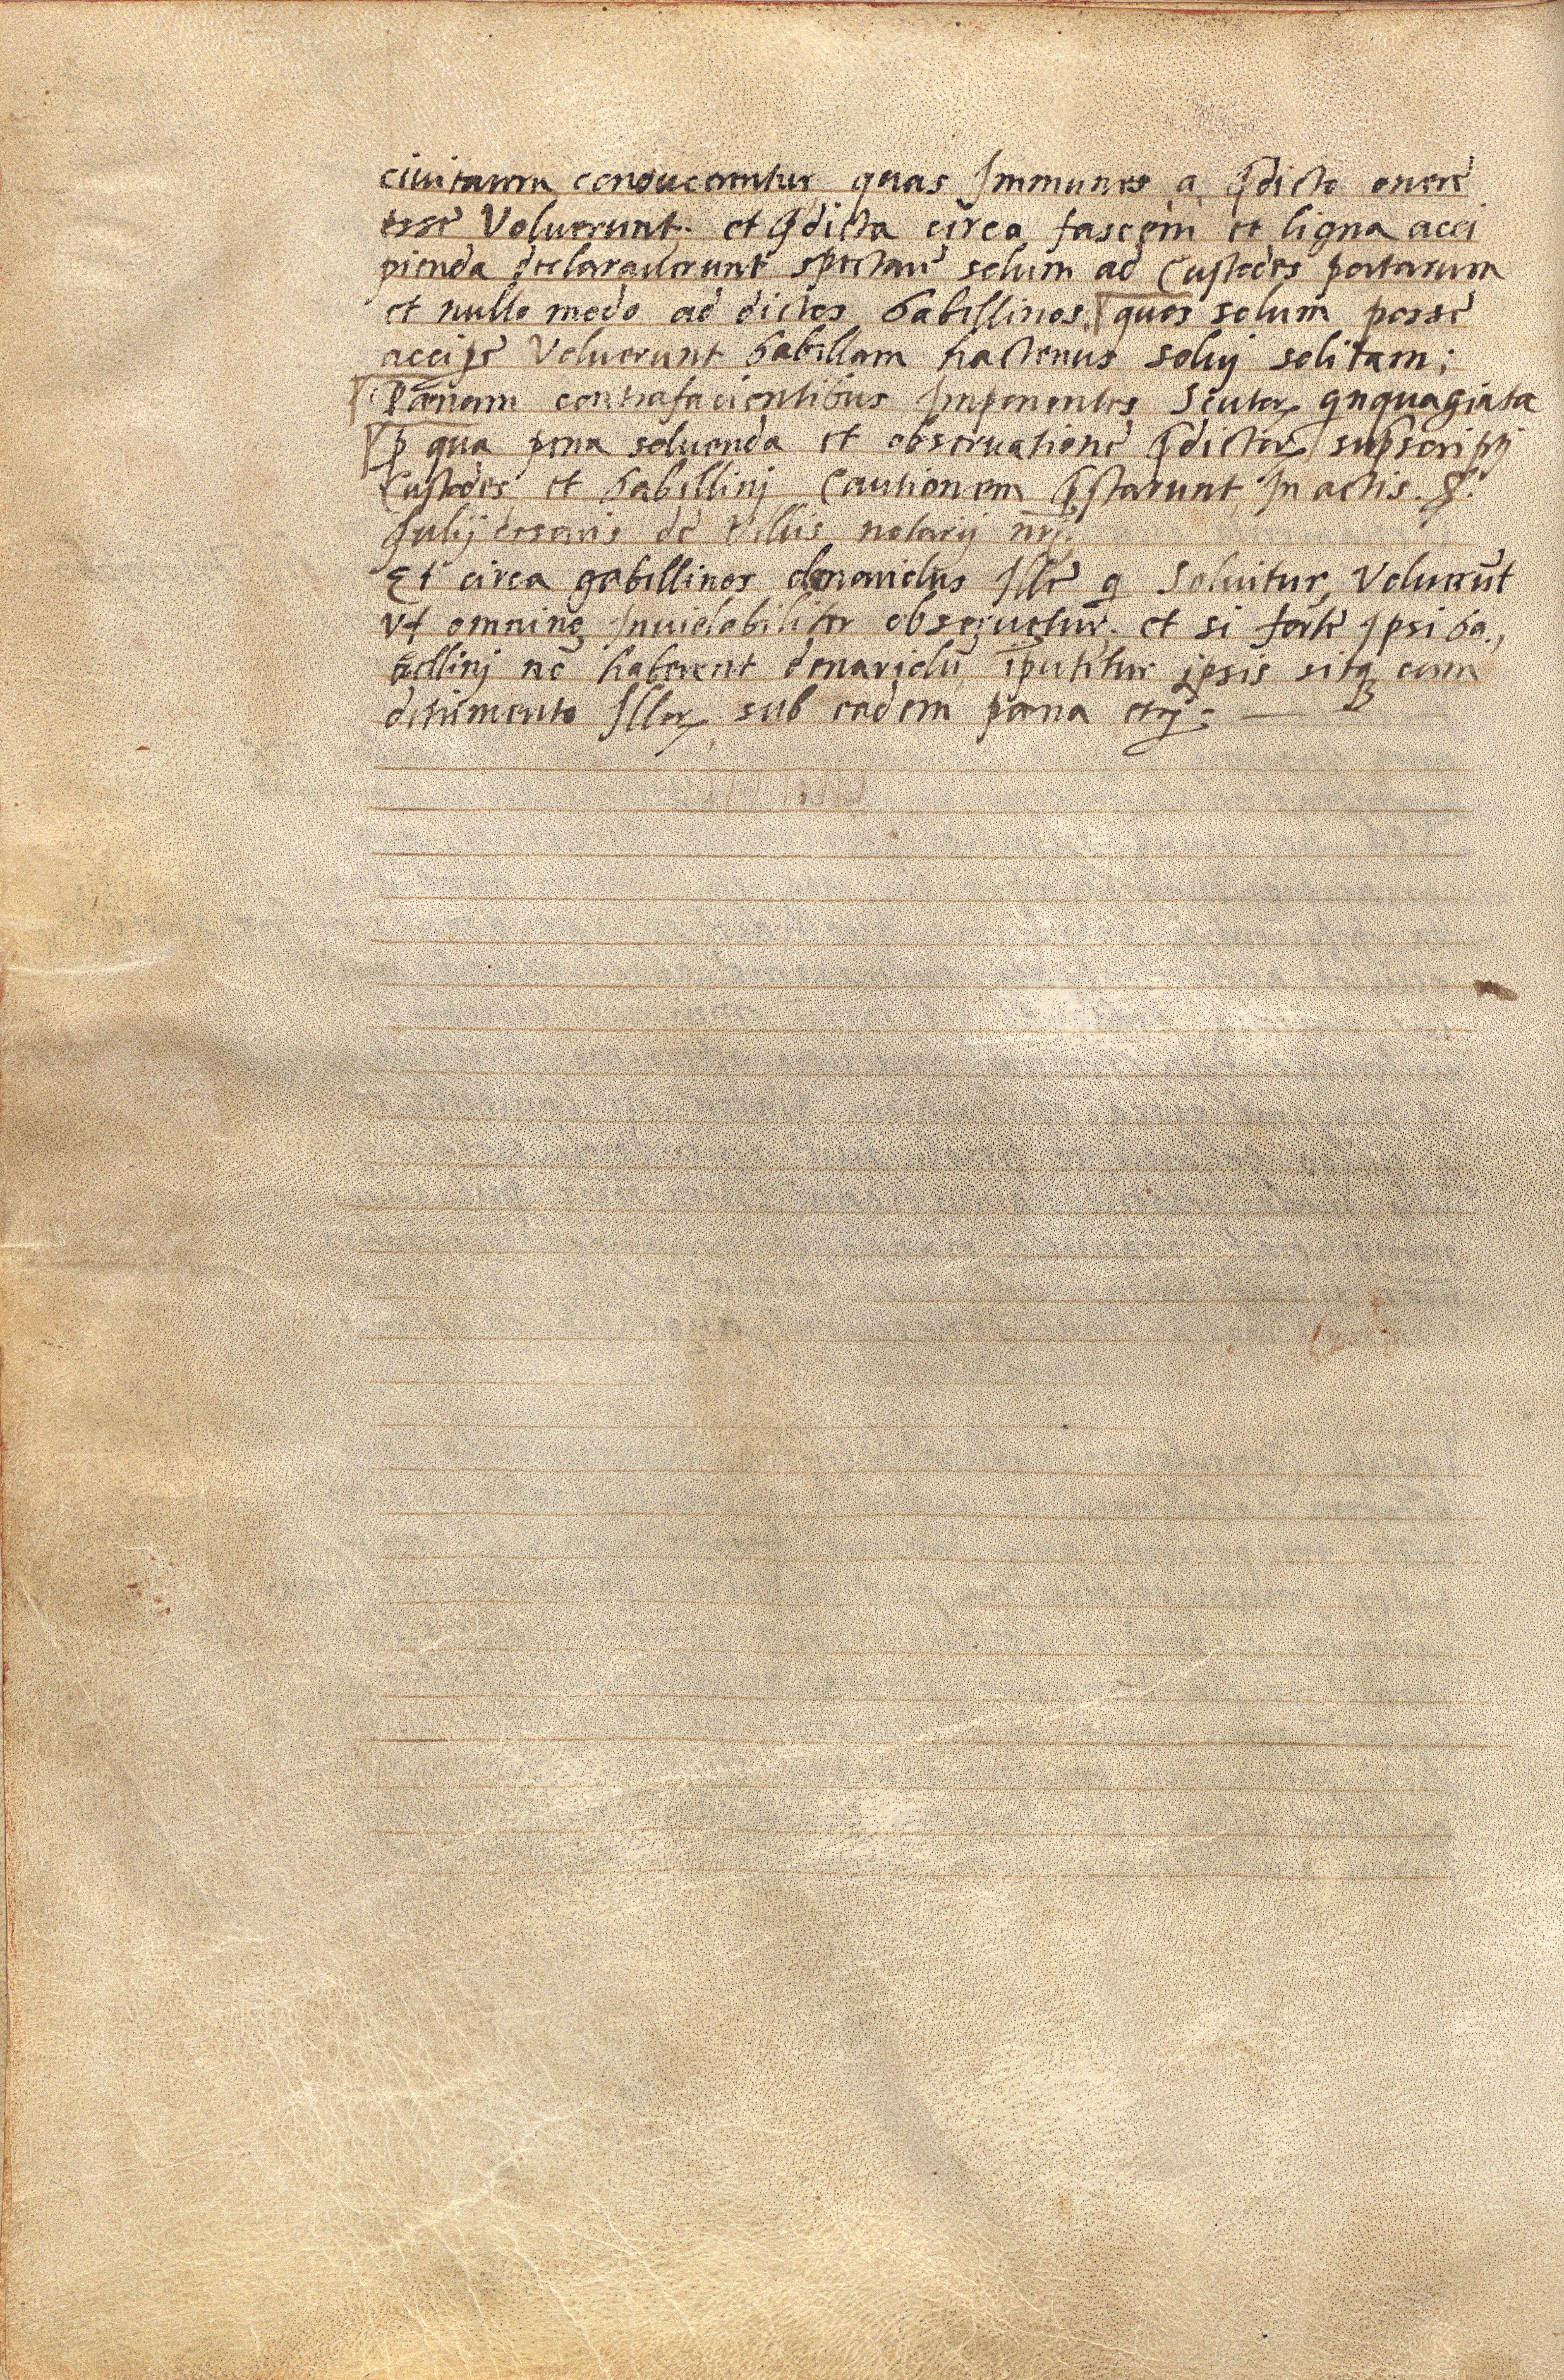 ciuitatem conducerentur quas Immunes a p̱dicto onere
esse Voluerunt. et p̱dicta circa fascem et ligna acci
pienda declarauerunt spectare solum ad Custodes portarum
et nullo modo ad dictos Gabellinos. quos solum posse
accipe Voluerunt Gabellam hactenus solui solitam;
Pænam contrafacientibus Imponentes Scutoꝝ qnquaginta
ꝓ qua pena soluenda et obseruatione p̱dictoꝝ supscripti
Custodes et Gabellinj Cautionem p̱starunt In actis. S.
Iulij cesaris de Vellis notarij nrj.
Et circa gabellinos denariolus Ille q Soluitur, Voluerūt
Vt omnino Inuiolabiliter obseruetur. et si forte Ipsi Ga.,
bellinj nō haberent denariolū iputetur ipsis sitqꝫ cum
detrimento Illoꝝ sub eadem pæna etcj: